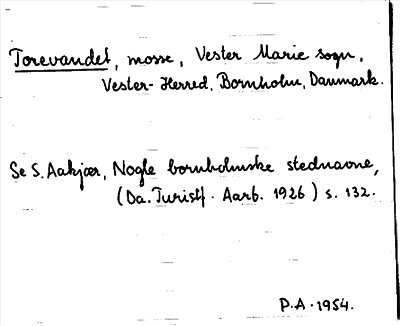 Torevandet, mosse, Vester Marie sogn,
Vester-Herred, Bornholm, Danmark.
Se S. Aakjær, Nogle bornholmske stednavne,
(Da. Turistf. Aarb. 1926) s. 132.
P.A. 1954.